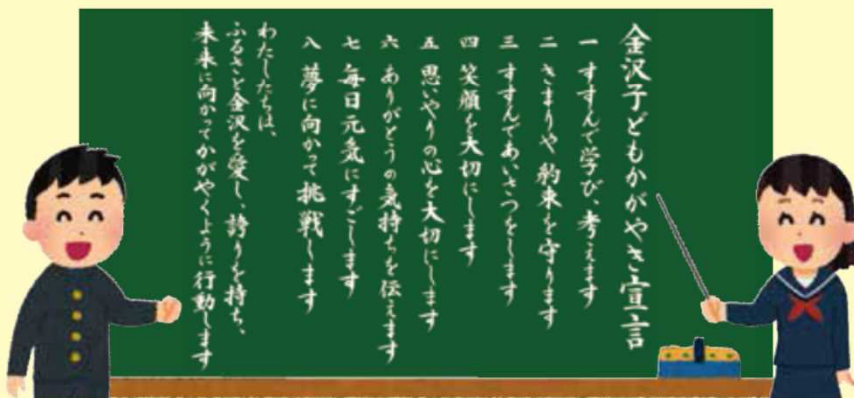 金沢子どもかがやき宣言
一 すすんで学び、考えます
二 きまりや 約束を守ります
三 すすんであいさつをします
四 笑顔を大切にします
五 思いやりの心を大切にします
六 ありがとうの気持ちを伝えます
七 毎日元気にすごします
八 夢に向かって挑戦します
わたしたちは、
ふるさと金沢を愛し、誇りを持ち、
未来に向かってかがやくように行動します